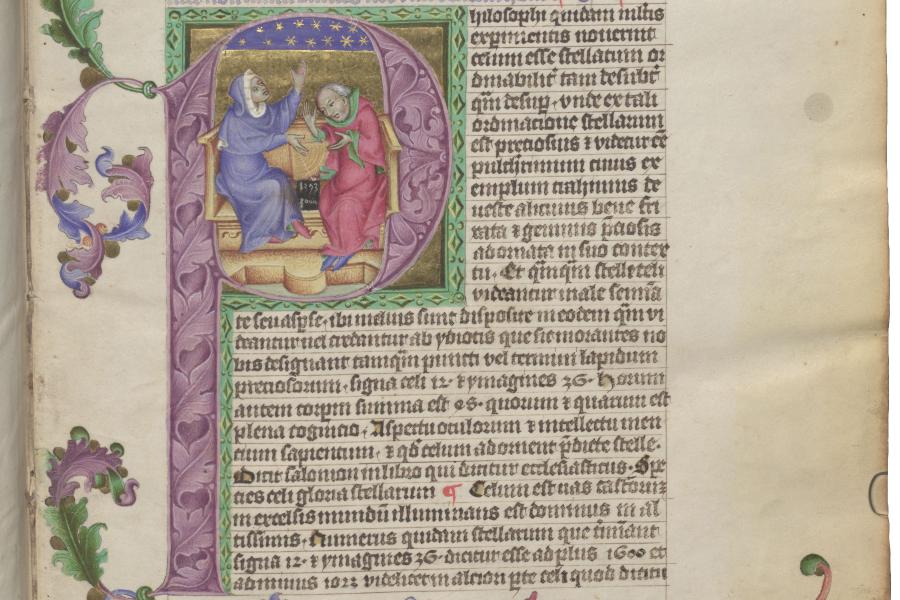 hilosophi quidam multis
experimentis noverunt
celum esse stellatum or
dinabilit tam desubt
qm desup. unde ex tali
ordinacione stellarum
est preciosius ⁊ videtur ee
pulcherrimum cuius ex
emplum trahimus de
veste alicuius bene
rata ⁊ gemmis pciosis
adornata in suo contex
tu. Et qmqm stelle celi
videantur male
te ibi melius sunt disposite in eodem qm vi
deantur vel credantur ab ydiotis que sic morantes no
bis designant tamqm puncti vel termini lapidum
preciosorum. signa celi 12. ⁊ ymagines 36. Horum
autem corpm summa est 48. quorum ⁊ quarum est
plena cognicio. Aspectu oculorum ⁊ intellectu men
cium sapientum. ⁊ qd celum adornent pdicte stelle.
Dicit salomon in libro qui dicitur ecclesiasticus. Spe
cies celi gloria stellarum ¶ Celum est vas castrorum
in excelsis mundu illuminans est dominus in al
tissimis. Numerus quidam stellarum que
signa 12. ⁊ ymagines 36. dicitur esse ad plus 1600 et
ad minus 1022 videlicet in alcion pte celi quod dicitur
1293